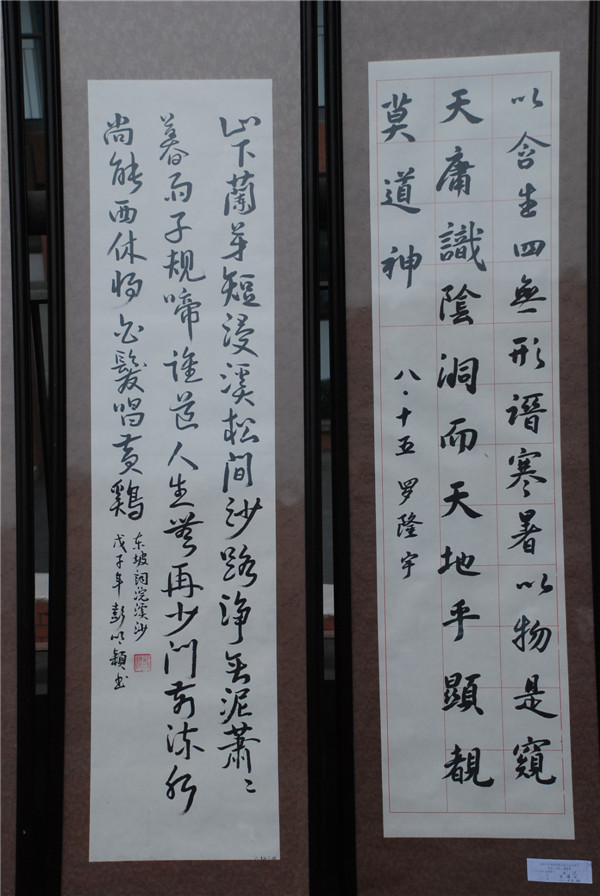 以含生四無形譖寒暑以物是窺
天庸識陰洞而天地乎顯覩
莫道神
八·十五 罗隆宇
山下蘭芽短浸溪松间沙路淨無泥蕭〻
暮雨子规啼誰道人生無再少门前流水
尚能西休将白髮唱黄鷄
东坡词浣溪沙
戊子年彭以颖书